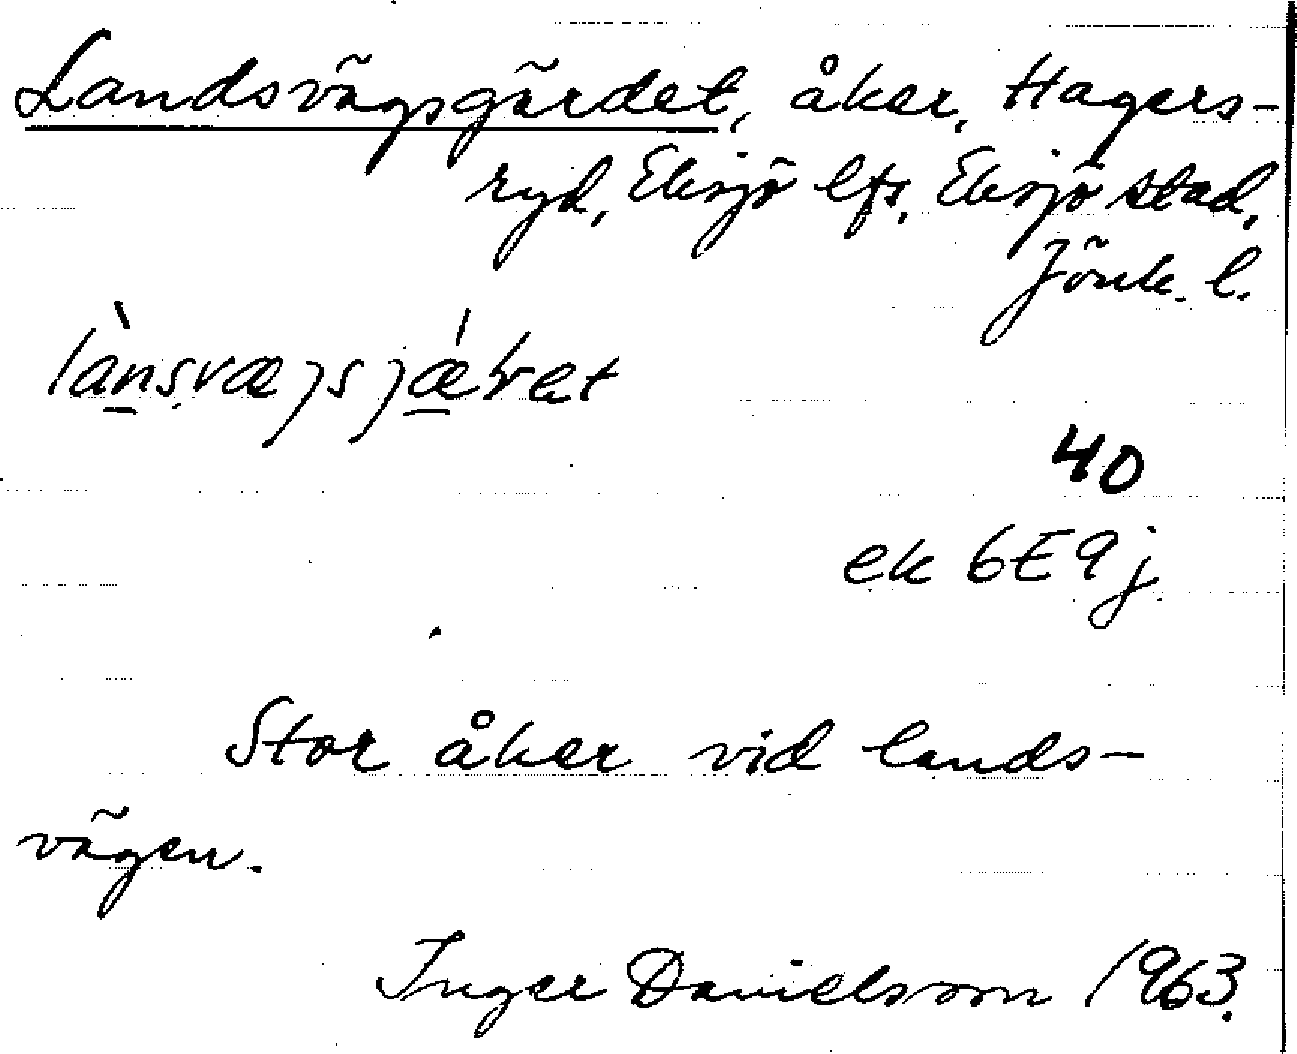 Landsvägsgärdet, åker, Hagers-
ryd, Eksjö lfs, Eksjö stad,
Jönk. l.
40
ek 6E9j
Stor åker vid lands-
vägen.
Inger Danielsson 1963.